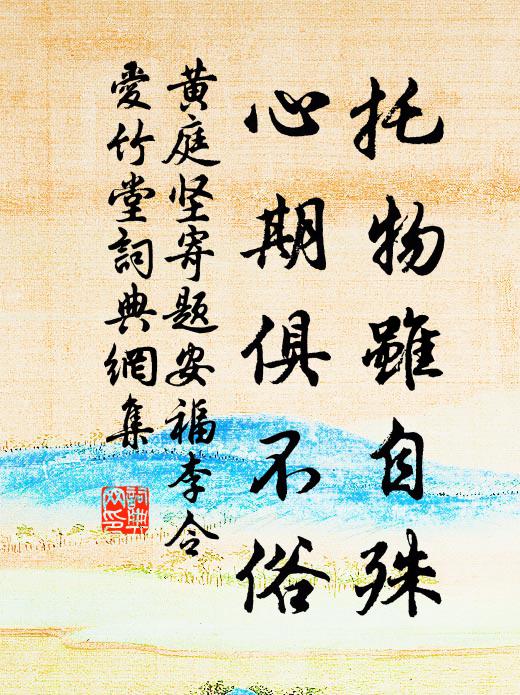 托物雖自殊
心期俱不俗
黄庭坚寄題安福李令
愛竹堂詞典網集
詞典网印